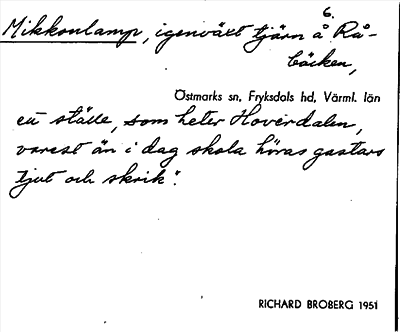 6.
Mikkonlamp, igenväxt tjärn å Rå-
bäcken,
Östmarks sn, Fryksdals hd, Värml. län
ett ställe, som heter Hoverdalen,
varest än i dag skola höras gastars
tjut och skrik".
RICHARD BROBERG 1951